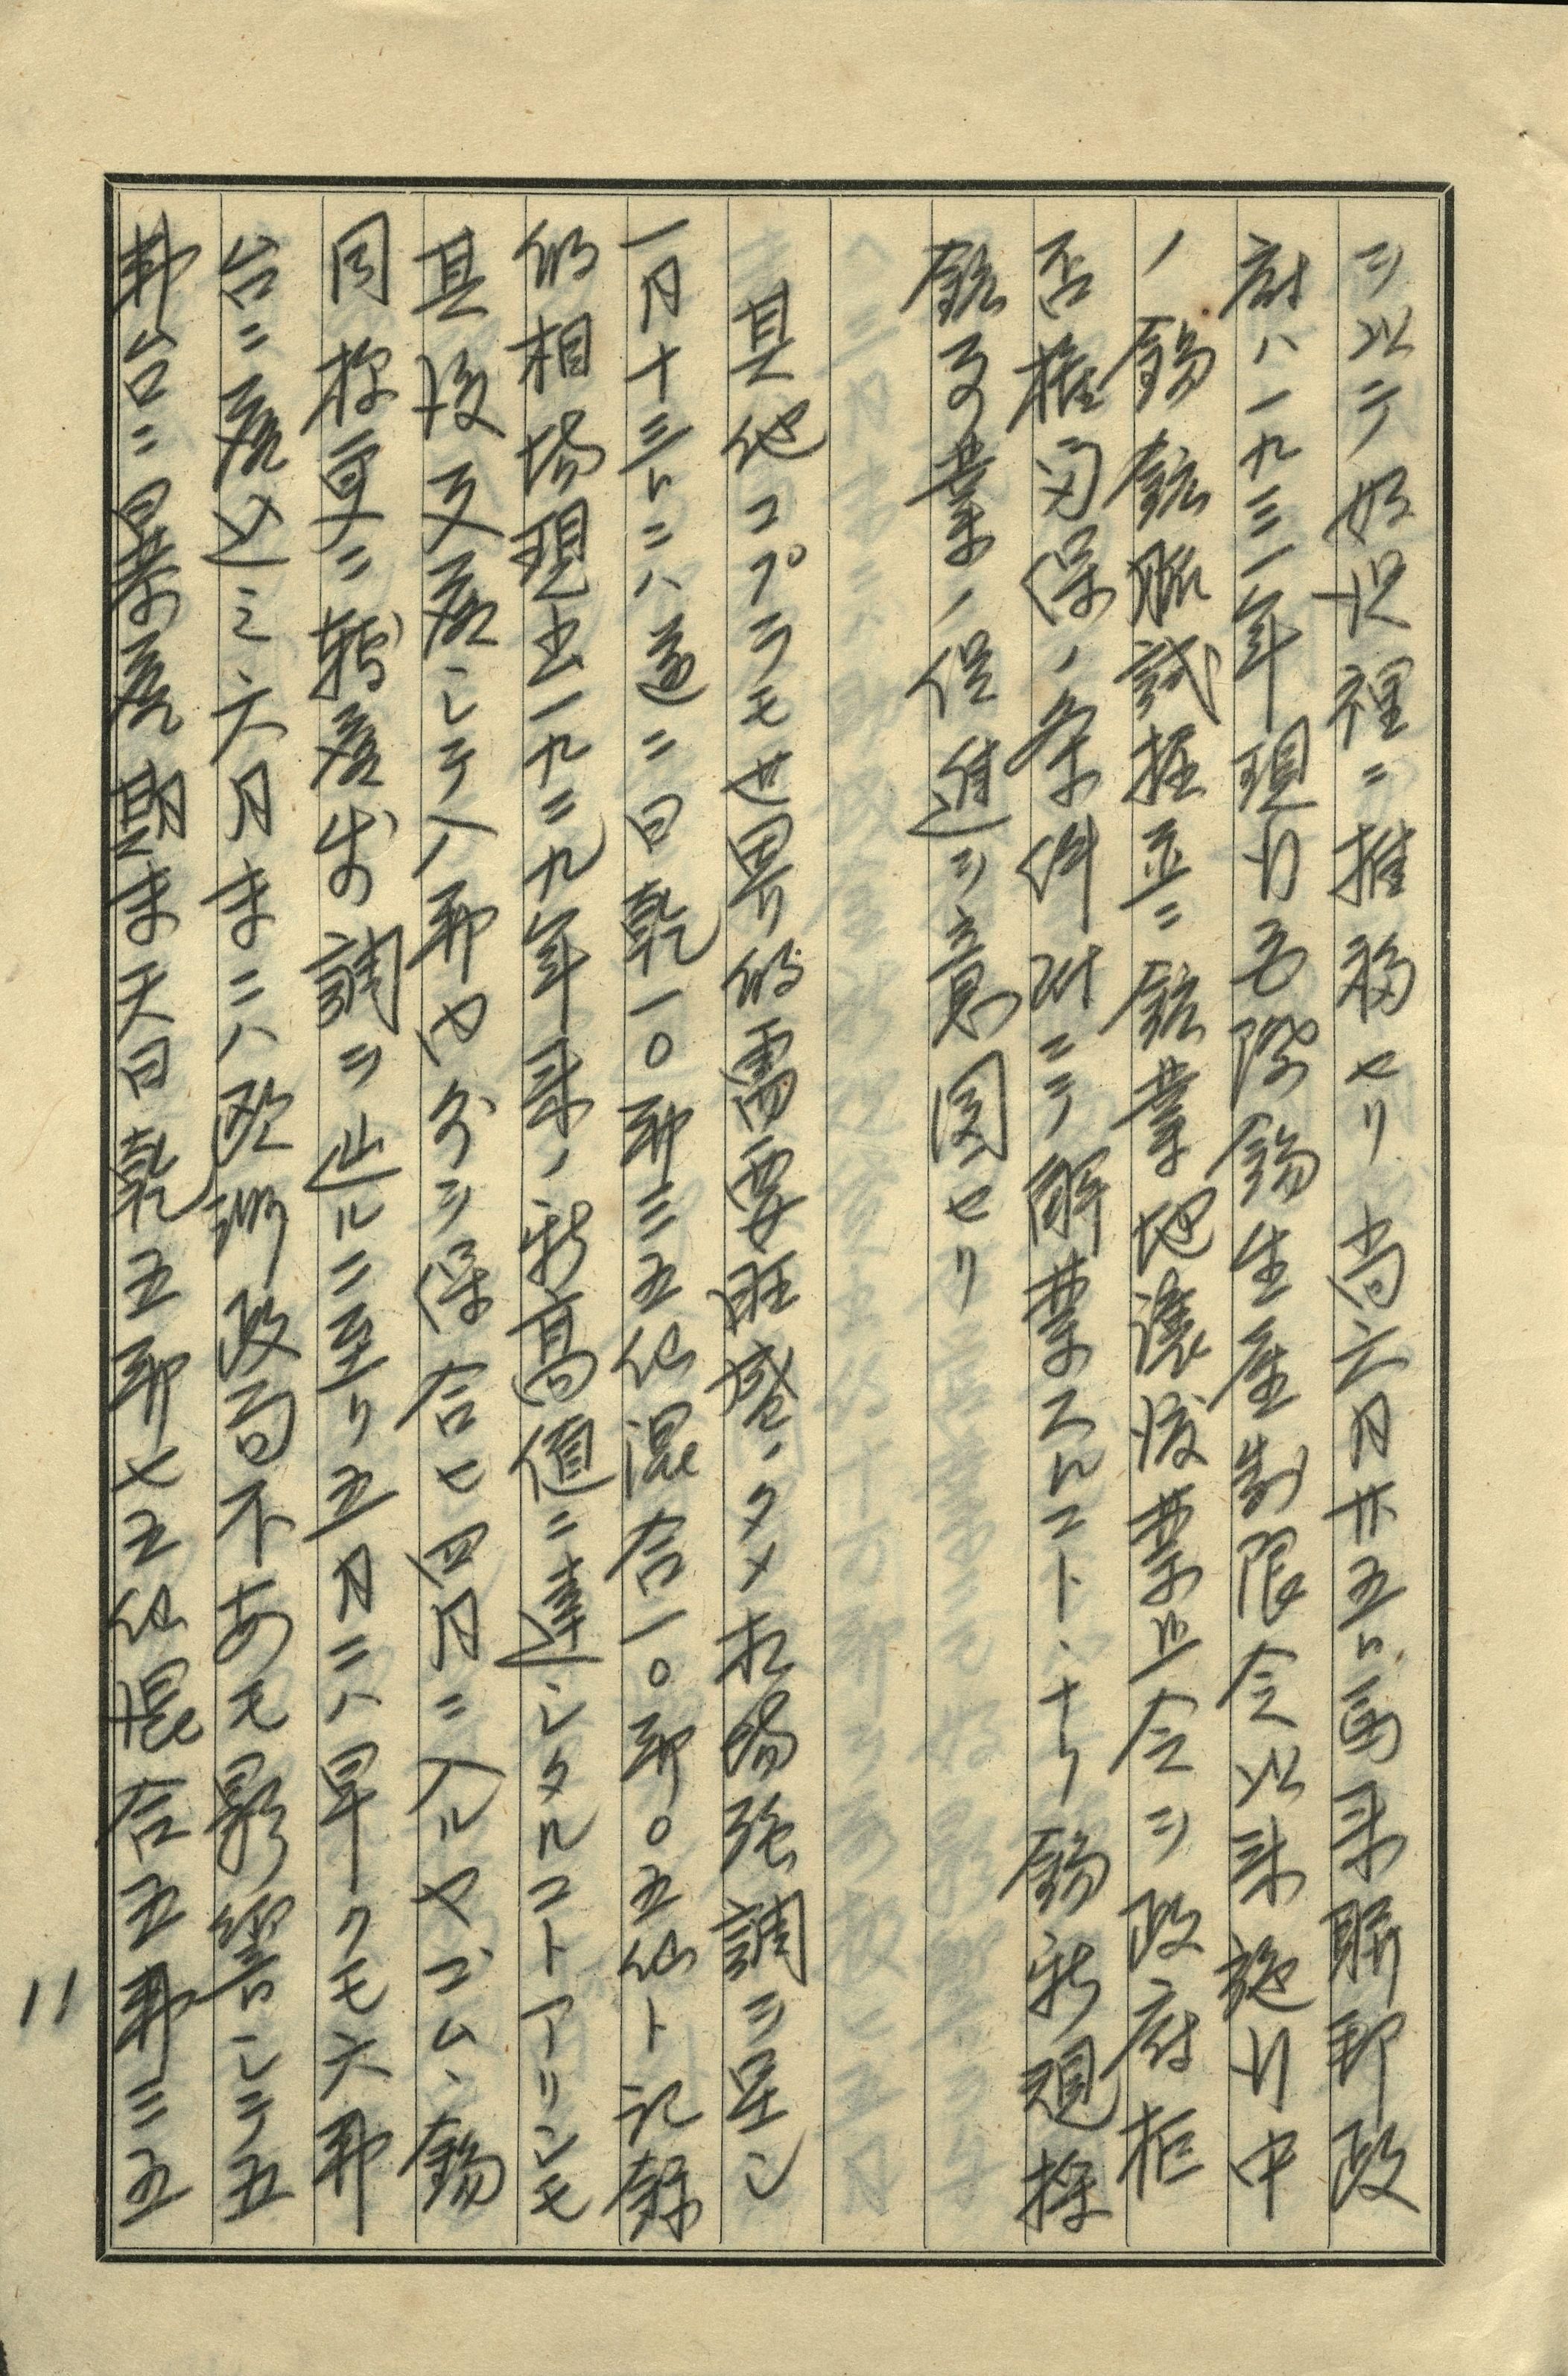 ヲ以テ好況裡ニ推移セリ 尚六月廿五日馬来聯邦政
府ハ一九三一年現行ノ錫生産制限令以来施行中
ノ錫鉱脈試掘並ニ鉱業地譲渡禁止令ヲ政府拒
否権留保ノ条件附ニテ解禁スルコトヽナリ錫新規採
鉱事業ノ促進ヲ意図セリ
其他コプラモ世界的需要旺盛ノタメ相場強調ヲ呈シ
一月十三日ニハ遂ニ日乾一〇弗三五仙混合一〇弗〇五仙ト記録
的相場現出一九二九年来ノ新高値ニ達シタルコトアリシモ
其後反落シテ八弗内外ヲ保合ヒ四月ニ入ルヤゴム、錫
同様更ニ転落歩調ヲ辿ルニ至リ五月ニハ早クモ六弗
台ニ落込ミ六月末ニハ欧洲政局不安モ影響シテ五
弗台ニ暴落期末天日乾五弗七五仙混合五弗三五
11